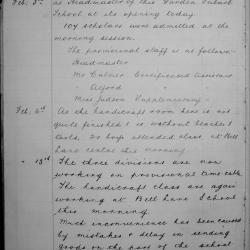 Feb. 5th as Headmaster of this Garden Suburb
School at its opening today.
104 scholars were admitted at the
morning session.
The provisional staff is as follows:-
Headmaster
Mr Certificated Assistant
" Alford "
Miss Judson Supplementary.
Feb. 6th As the handicraft room here is not
quite finished & is without benches &
tools, 20 boys attended class at Bell
Lane centre this morning.
" 13th The three divisions are now
working on provisional time table.
The handicraft class are again
working at Bell Lane School
this morning.
Much inconvenience has been caused
by mistakes & delay in sending
goods on the part of the school